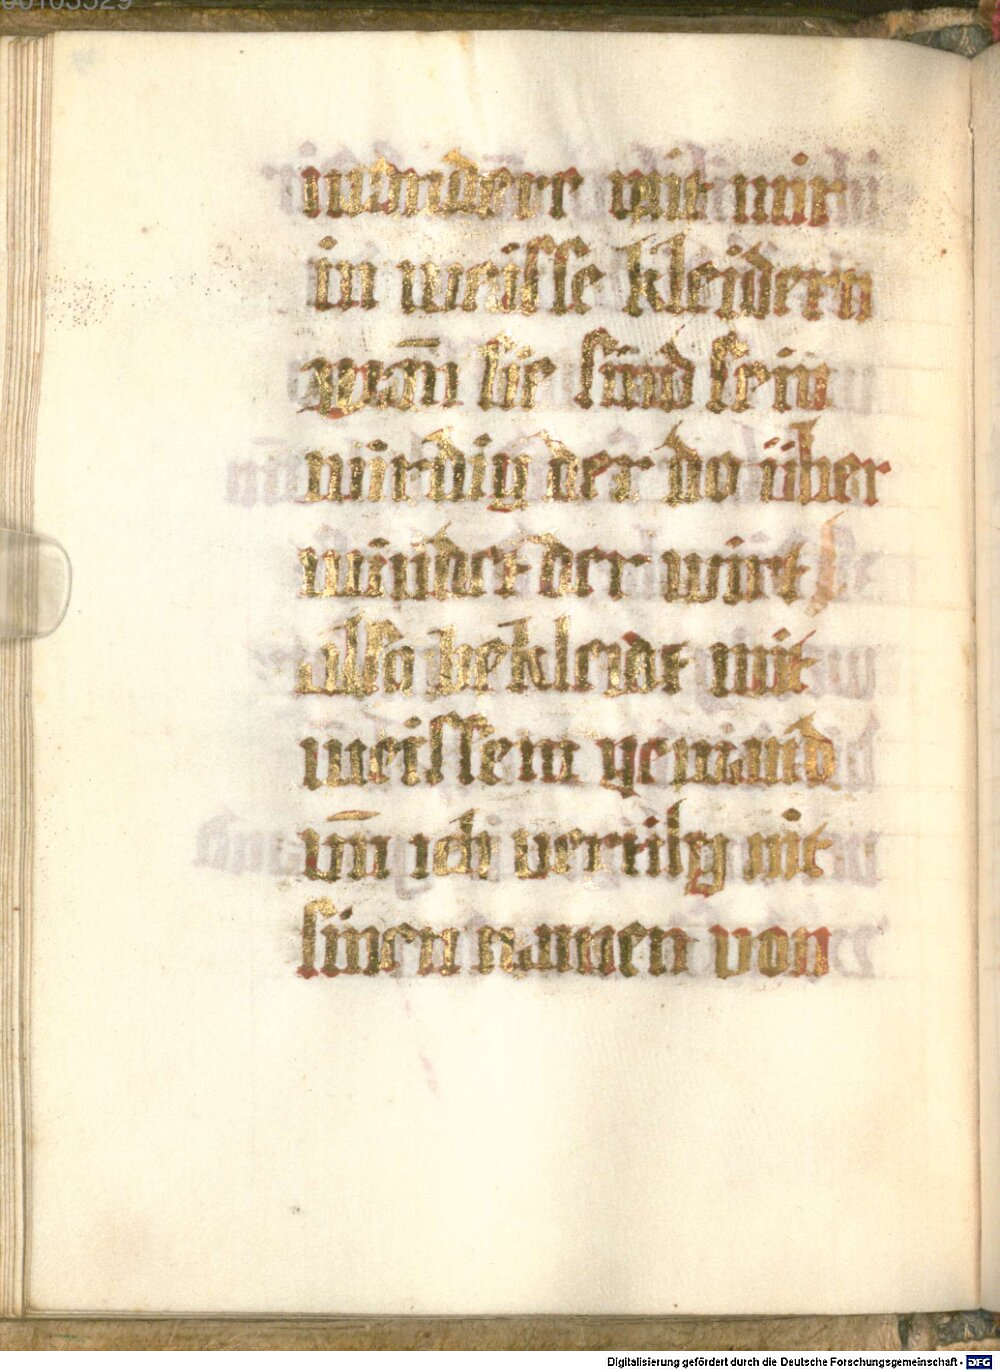 wandere mit mir
in weisse kleidern
wān sie sind sein
wirdig der do über
windet der wirt
also bekleidt mit
weissem gewand
vn̄ ich vertilg nit
sinen namen von
Digitalisierung gefördert durch die Deutsche Forschungsgemeinschaft - DFG